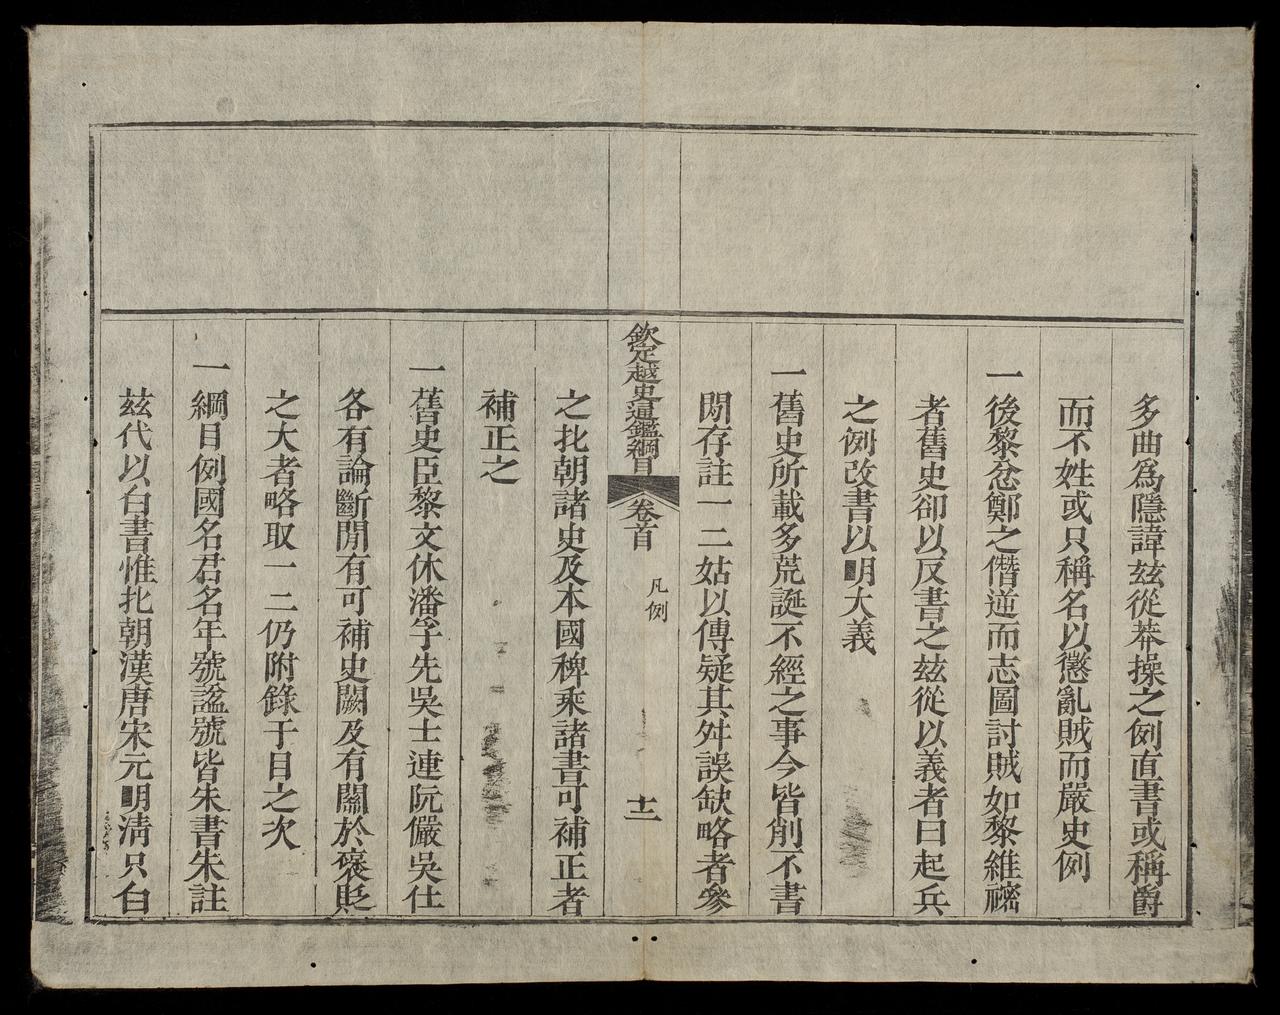 多曲爲隱諱玆從莽操之例直書或稱爵
而不姓或只稱名以懲亂賊而嚴史例
一後黎忿鄭之僭逆而志圖討賊如黎維𥛭
者舊史卻以反書之玆從以義者曰起兵
之例改書以明大義
一舊史所載多荒誕不經之事今皆削不書
間存註一二姑以傳疑其舛誤缺略者參
欽定越史通鑑綱目 卷首 凡例 十二
之北朝諸史及本國稗乘諸書可補正者
補正之
一舊史臣黎文休潘孚先吳士連阮儼吳仕
各有論斷間有可補史闕及有關於褒貶
之大者略取一二仍附錄于目之次
一綱目例國名君名年號謚號皆朱書朱註
玆代以白書惟北朝漢唐宋元明淸只白